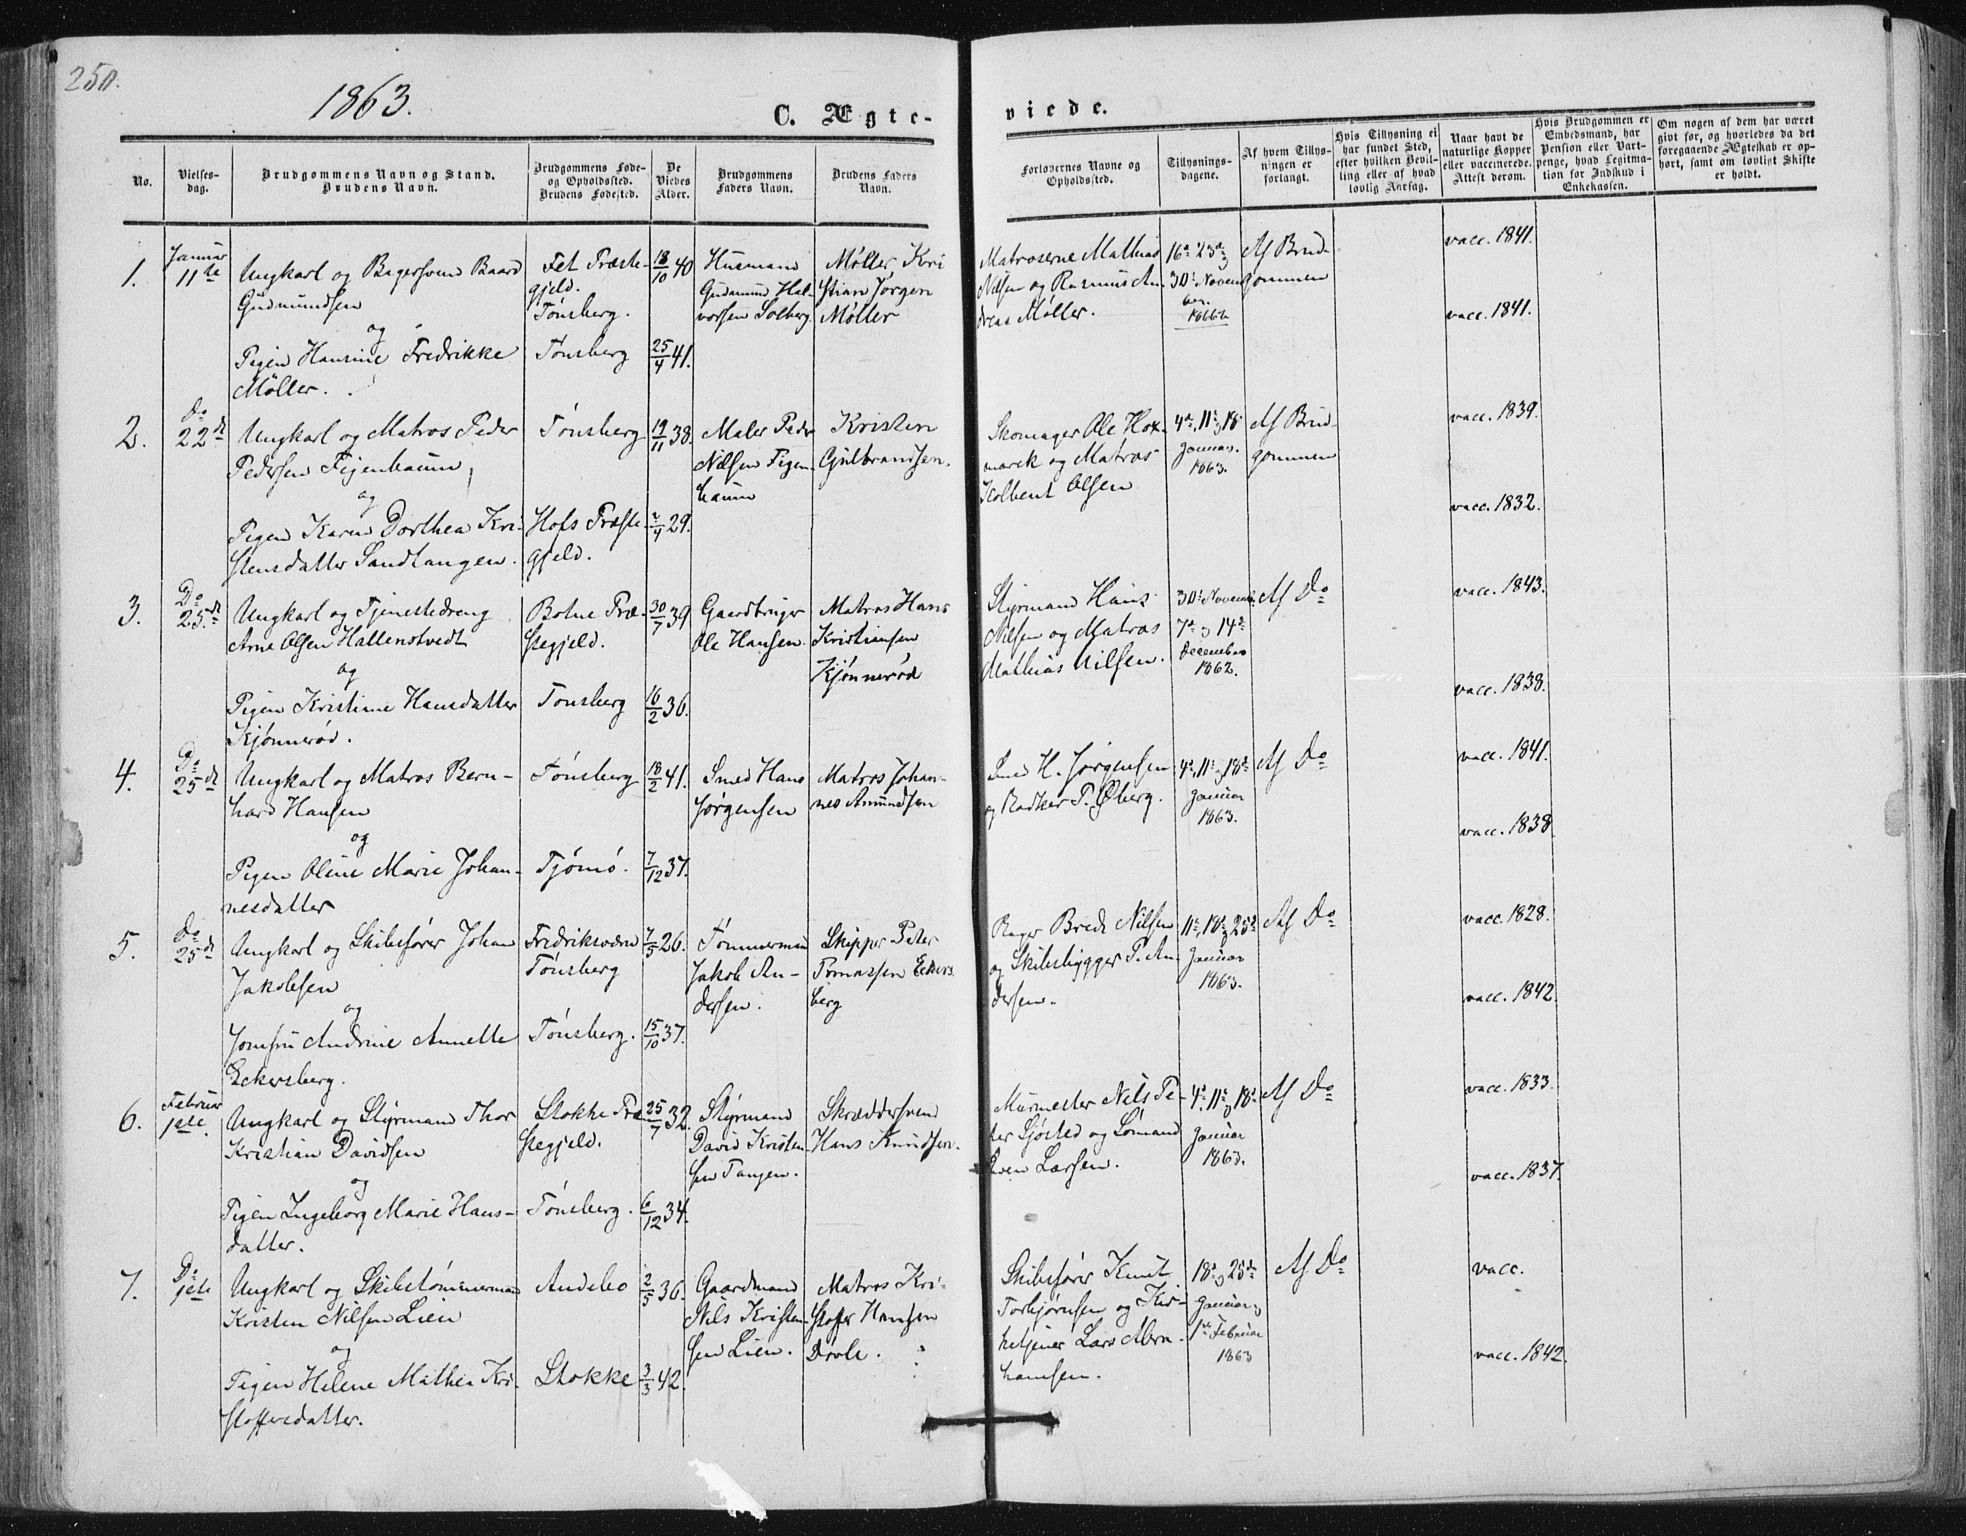 250.
1863.
C. Ægte-
viede.
No.
Vielses-
dag.
Brudgommens Navn og Stand.
Brudens Navn.
Brudgommens Føde-
og Opholdssted.
Brudens Fødested.
De
Viedes
Alder.
Brudgommens
Faders Navn.
Brudens Faders
Navn.
Forlovernes Navne og
Opholdssted.
Tillysnings-
dagene.
Af hvem Tillys-
ningen er
forlangt.
Hvis Tillysning ei
har fundet Sted,
efter hvilken Bevil-
ling eller af hvad
lovlig Aarsag.
Naar havt de
naturlige Kopper
eller vaccinerede.
Attest derom.
Hvis Brudgommen er
Embedsmand, har
Pension eller Vart-
penge, hvad Legitima-
tion for Indskud i
Enkekassen.
Om nogen af dem har været
givt før, og hvorledes da det
foregaaende Ægteskab er op-
hørt, samt om lovligt Skifte
er holdt.
1.
Januar
11te
Ungkarl og Bagersvend Baard
Gudmundsen
og
Pigen Hansine Fredrikke
Møller.
Fet Præste-
gjeld.
Tønsberg.
Tønsberg
18/10 40
25/4 41.
Husmand
Gudmund Hal-
vorsen Solberg
Møller, Kri
stian Jørgen
Møller
Matroserne Mathias
Nilsen og Rasmus An-
dreas Møller.
16de 23de
30te Novem
ber
1862
Af Brud-
gommen
vacc. 1841.
vacc. 1841.
2.
Do
22de
Ungkarl og Matros Peder
Pedersen Figenbaum
og
Pigen Karen Dorthea Kri-
stensdatter Sandtangen.
Tønsberg
Hofs Præste-
gjeld.
19/11 38.
29.
Maler Peder
Nilsen Figen-
baum
Kristen
Gulbrandsen.
Skomager Ole Hox-
mark og Matros
Kolbent Olsen
4de, 11te, 18de
Januar.
1863.
Af Brud-
gommen
vacc. 1839.
vacc. 1832.
3.
Do
25de
Ungkarl og Tjenestedreng
Arne Olsen Hallenstvedt
og
Pigen Kristine Hansdatter
Kjønnerød.
Botne Præ-
stegjeld.
Tønsberg
30/7 39
16/2 36.
Gaardbruger
Ole Hansen.
Matros Hans
Kristiansen
Kjønnerød
Styrmand Hans
Nilsen og Matros
Mathias Nilsen.
30te Novemb.
7de og 14de
December
1862.
Af Do
vacc. 1843.
vacc. 1838.
4.
Do
25de
Ungkarl og Matros Bern-
hard Hansen
og
Pigen Oline Marie Johan-
nesdatter
Tønsberg
Tjømø.
18/2 41.
7/12 37.
Smed Hans
Jørgensen
Matros Johan-
nes Amundsen
Smed H. Jørgensen
og Bødker P. Øberg.
4de, 11te og 18de
Januar
1863.
Af Do
vacc. 1841.
vacc. 1838
5.
Do
25de
Ungkarl og Skibsfører Johan
Jakobsen
og
Jomfru Andrine Annette
Eckersberg.
Fredriksværn
Tønsberg
Tønsberg.
7/5 26.
15/10 37.
Tømmermand
Jakob An-
dersen.
Skipper Peter
Tomassen Eckers
berg
Bager Brede Nilsen
og Skibsbygger P. An-
dersen.
11te, 18de og 25de
Januar
1863.
Af Do
vacc. 1828.
vacc. 1842.
6.
Februar
1ste.
Ungkarl og Styrmand Thor
Kristian Davidsen
og
Pigen Ingeborg Marie Hans-
datter.
Stokke Præ
stegjeld.
Tønsberg.
25/7 32.
6/12 34.
Styrmand
David Kristen-
sen Tangen.
Skræddersvend
Hans Knudsen.
Murmester Nils Pe-
ter Sjøsted og Sømand
Even Larsen.
4de, 11te og 18de
Januar
1863.
Af Do
vacc. 1833.
vacc. 1837.
7.
Do
1ste
Ungkarl og Skibstømmermand
Kristen Nilsen Lien
og
Pigen Helene Mathea Kri-
stoffersdatter.
Andebo
Stokke
2/5 36.
3/3 42.
Gaardmand
Nils Kristen-
sen Lien.
Matros Kri-
stoffer Hansen
Skibsfører Knut
Torbjørnsen og Kir-
ketjener Lars Abra-
hamsen.
18de og 25de
Januar og
1ste Februar
1863
Af Do
vacc.
vacc. 1842.